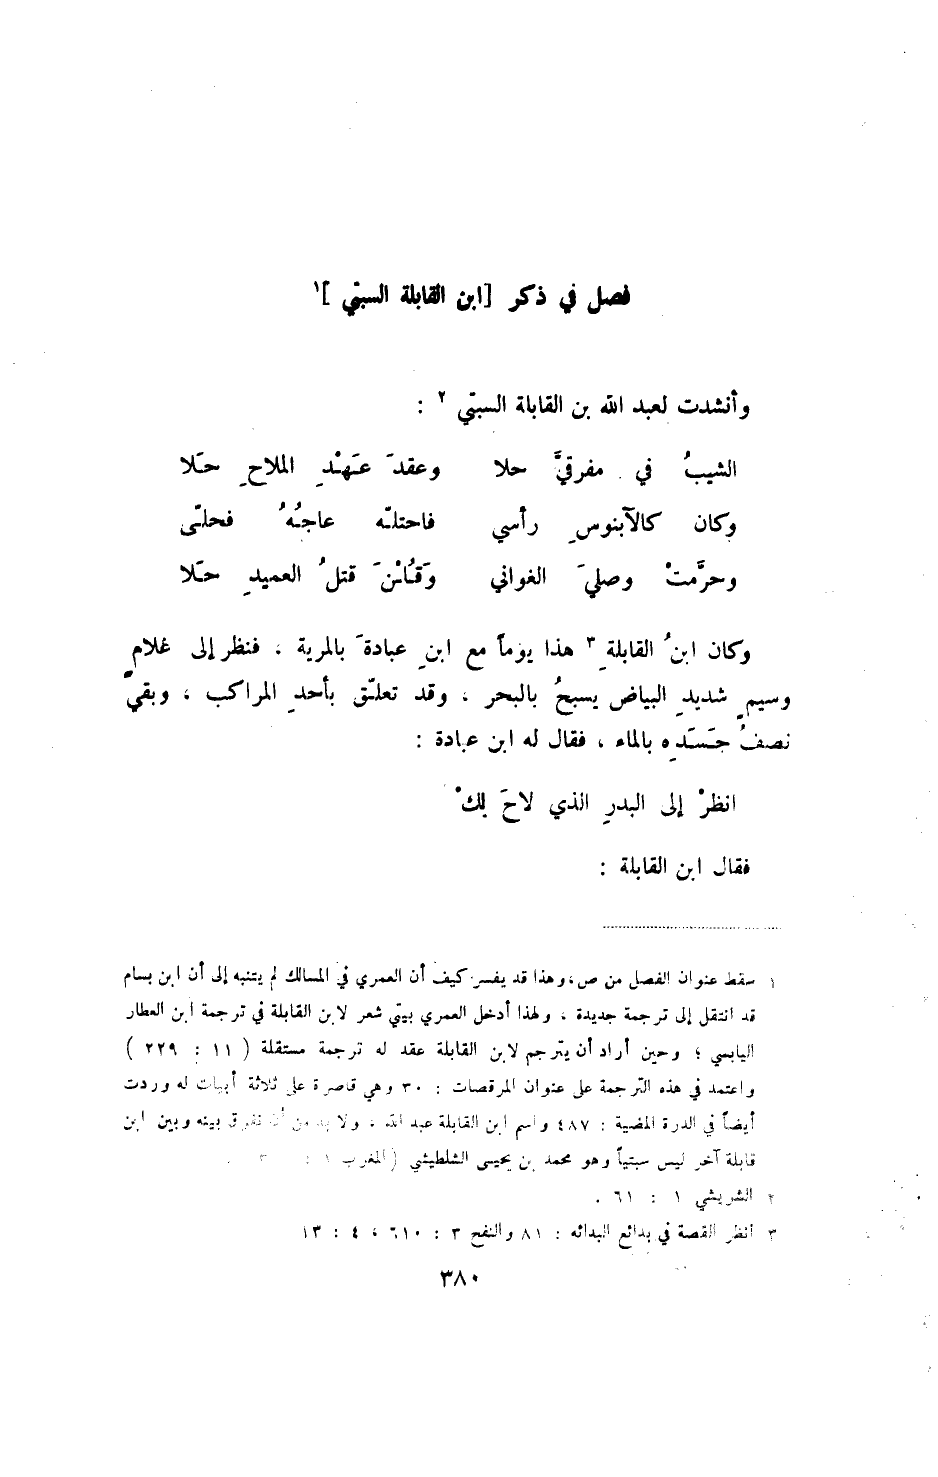 فصل في ذكر [ابن القابلة السبتي]١
وأنشدت لعبد الله بن القابلة السبتي ٢ :
الشيبُ في مفرقيَّ حلا وعقدَ عَهْدِ الملاحِ حَلا
وكان كالآبنوسِ رأسي فاحتلّه عاجُهُ فحلّى
وحرَّمتْ وصليَ الغواني وَقُلْنَ قتلُ العميدِ حَلا
وكان ابنُ القابلةِ ٣ هذا يوماً مع ابنِ عبادةَ بالمرية ، فنظر إلى غلامٍ
وسيمٍ شديدِ البياض يسبحُ بالبحر ، وقد تعلّق بأحدِ المراكب ، وبقيَ
نصفُ جَسَدِه بالماء ، فقال له ابن عبادة :
انظرْ إلى البدرِ الذي لاحَ لكْ
فقال ابن القابلة :
١ سقط عنوان الفصل من ص ، وهذا قد يفسر كيف أن العمري في المسالك لم يتنبه إلى أن ابن بسام
قد انتقل إلى ترجمة جديدة ، ولهذا أدخل العمري بيتي شعر لابن القابلة في ترجمة ابن العطار
اليابسي ؛ وحين أراد أن يترجم لابن القابلة عقد له ترجمة مستقلة ( ١١ : ٢٢٩ )
واعتمد في هذه الترجمة على عنوان المرقصات : ٣٠ وهي قاصرة على ثلاثة أبيات له وردت
أيضاً في الدرة المضية : ٤٨٧ واسم ابن القابلة عبد الله ، ولا بد من أن نفرق بينه وبين ابن
قابلة آخر ليس سبتياً وهو محمد بن يحيى الشلطيشي (المغرب ١ :
٢ الشريشي ١ : ٦١ .
٣ انظر القصة في بدائع البدائه : ٨١ والنفح ٣ : ٦١٠ ، ٤ : ١٣
٣٨٠